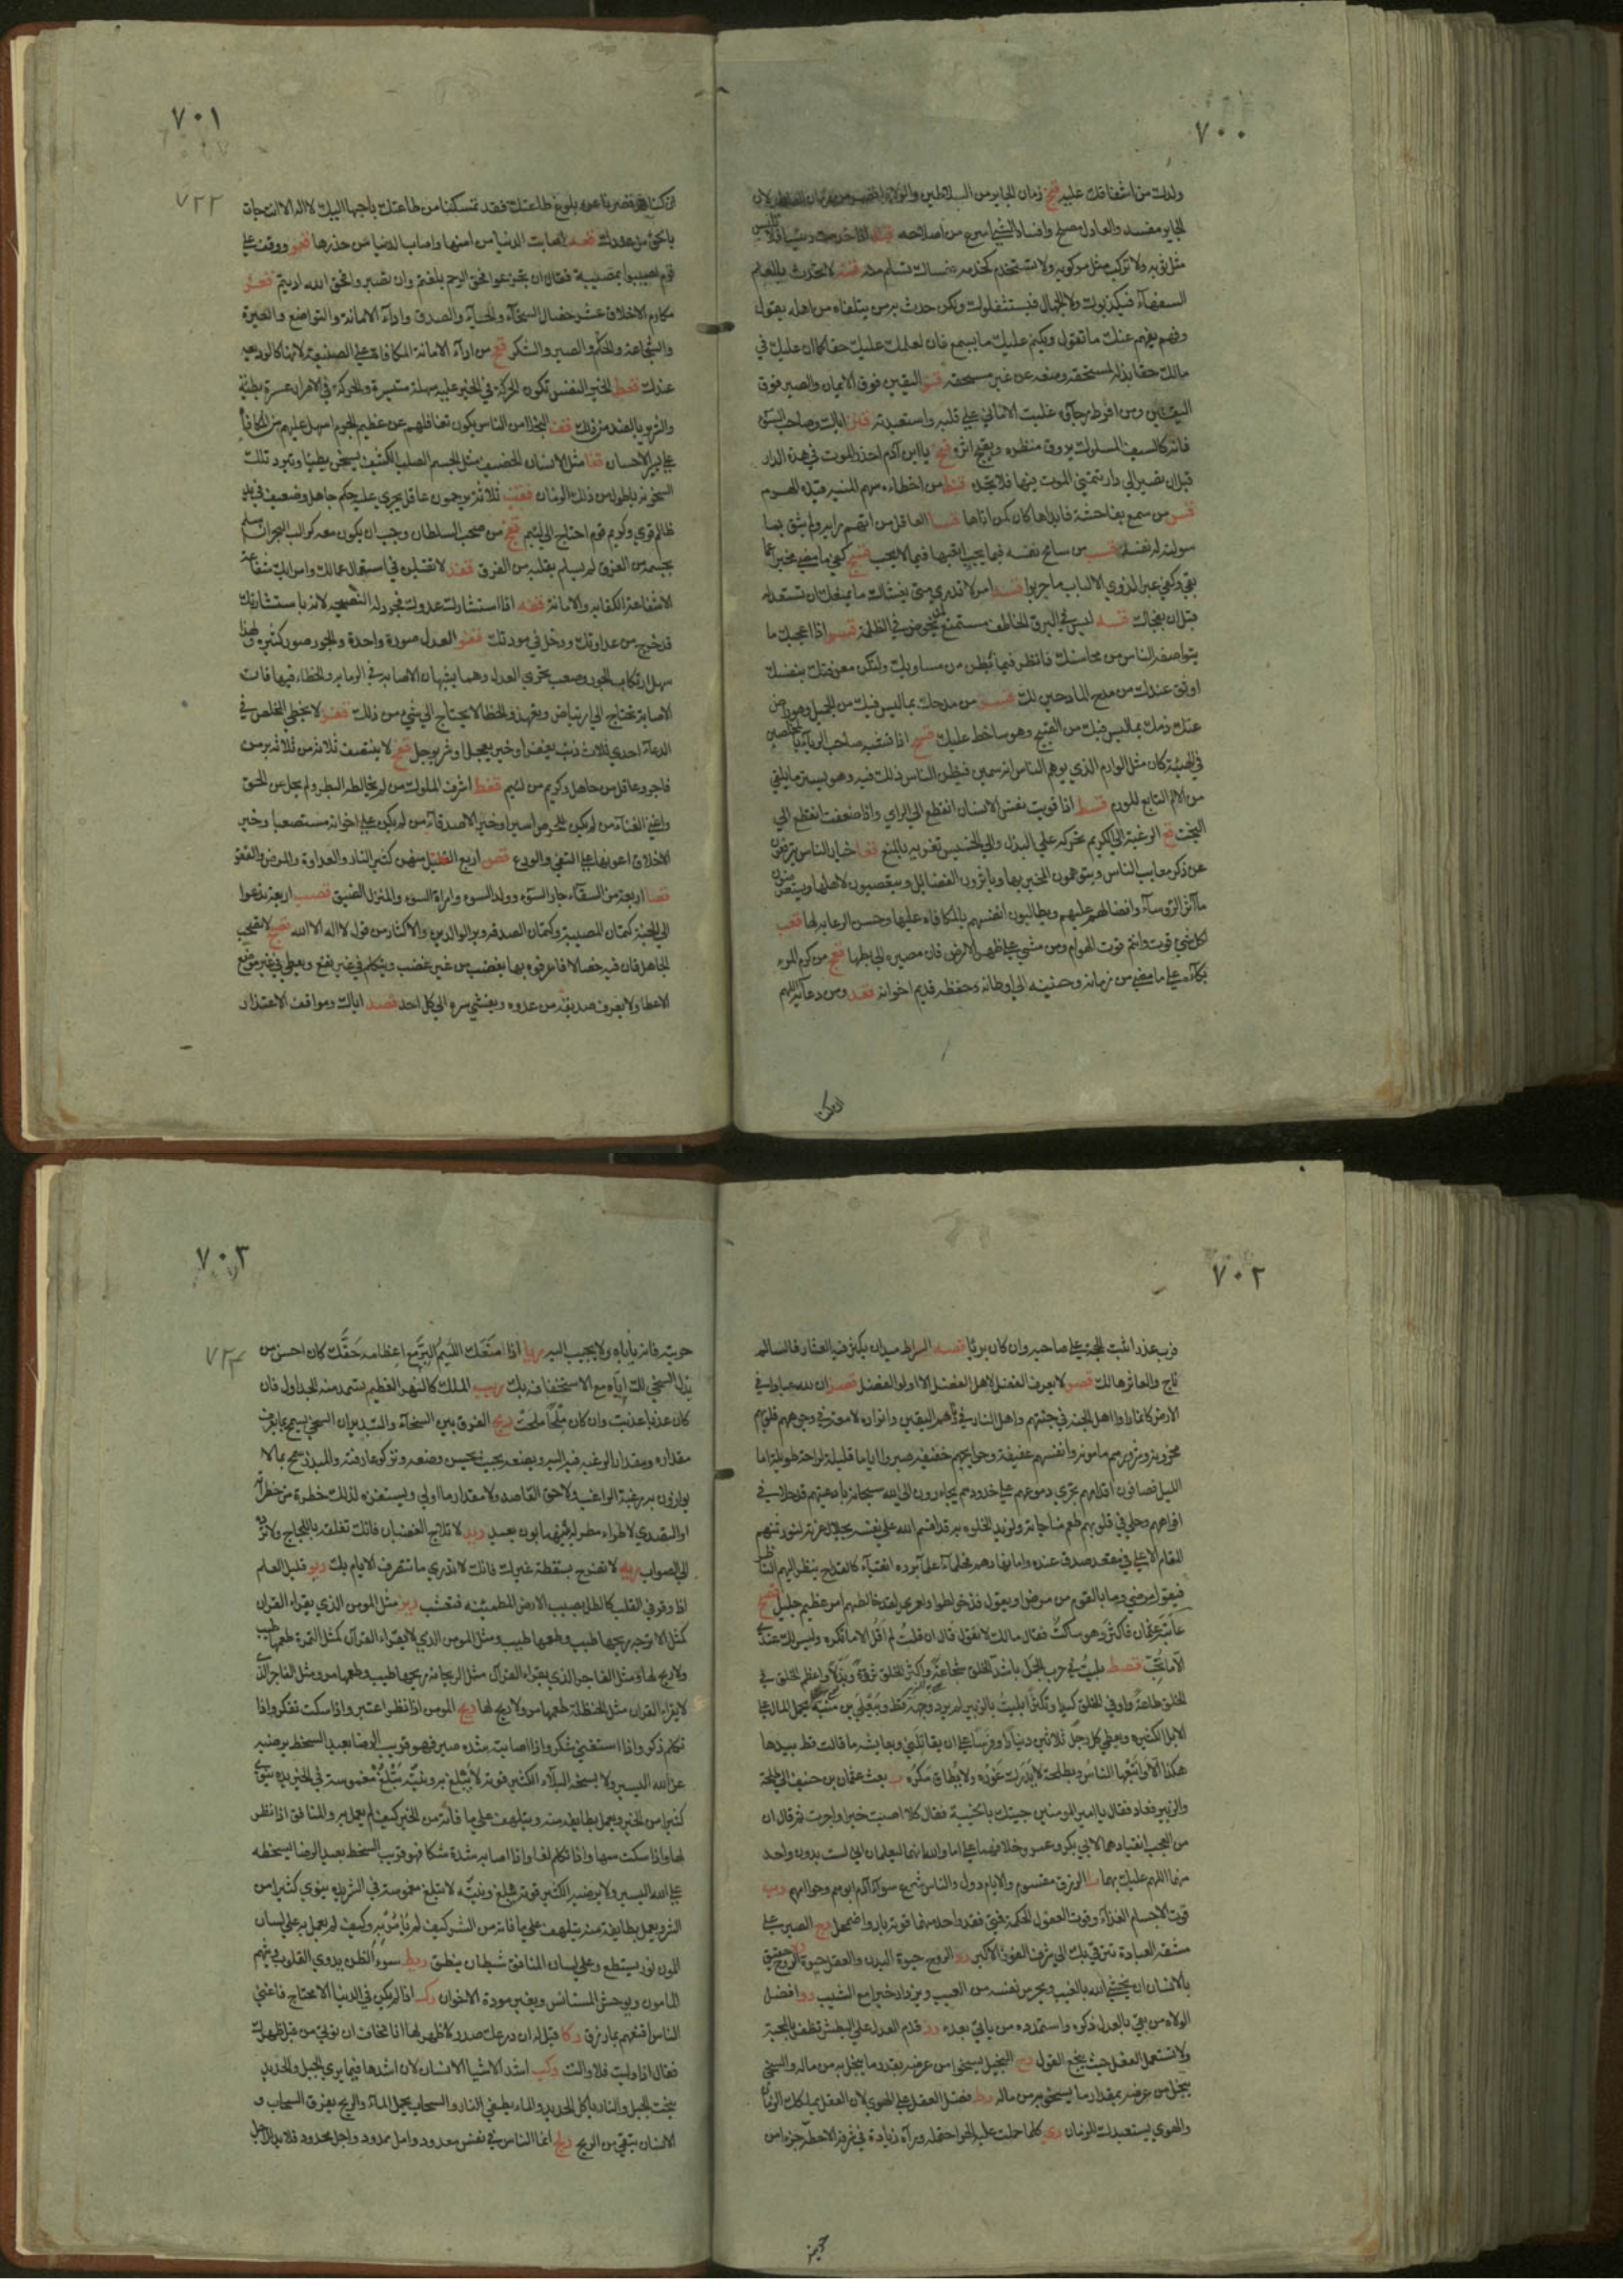 ٧٠٠
ولدك من اشفاقك عليه قنج زمان الجاير من السلاطين والولاة اقصر من زمان العادل لان
الجاير مفسد والعادل مصلح وافساد الشي اسرع من اصلاحه قند اذا خدمت رئيسا فلا تلبس
مثل ثوبه ولا تركب مثل مركوبه ولا تستخدم كخدمه فعساك تسلم منه قنه لا تحدث بالعلم
السفهاء فيكذبوك ولا الجهال فيستثقلوك ولكن حدث به من يتلقاه من اهله بقبول
وفهم يفهم عنك ما تقول ويكتم عليك ما يسمع فان لعلمك عليك حقا كما ان عليك في
مالك حقا بذله لمستحقه ومنعه عن غير مستحقه قنو اليقين فوق الايمان والصبر فوق
اليقين ومن افرط رجاؤه غلبت الاماني على قلبه واستعبدته قنز اياك وصاحب السوء
فانه كالسيف المسلول يروق منظره ويقبح اثره قنح يا ابن آدم احذر الموت في هذه الدار
قبل ان تصير الى دار تتمنى الموت فيها فلا تجده قنط من اخطاءه سهم المنيه قيده الهرم
قس من سمع بفاحشة فابداها كان كمن اتاها قسا العاقل من اتهم رايه ولم يثق بما
سولته له نفسه قسب من سامح نفسه فيما يحب اتعبها فيما لا يحب قسج كفى ما مضى مخبرا عما
بقي وكفى عبرا لذوي الالباب ما جربوا قسد امر لا تدري متى يغشاك ما يمنعك ان تستعد له
قبل ان يفجاك قسه ليس في البرق الخاطف مستمتع لمن يخوض في الظلمة قسو اذا اعجبك ما
يتواصفه الناس من محاسنك فانظر فيما بطن من مساويك ولتكن معرفتك بنفسك
اوثق عندك من مدح المادحين لك قسز من مدحك بما ليس فيك من الجميل وهو راض
عنك ذمك بما ليس فيك من القبيح وهو ساخط عليك قسح اذا تشبه صاحب الرياء بالمخلصين
في الهيئة كان مثل الوارم الذي يوهم الناس انه سمين فيظن الناس ذلك فيه وهو يستر ما يلقى
من الالم التابع للورم قسط اذا قويت نفس الانسان انقطع الى الراي واذا ضعفت انقطع الى
البخت قع الرغبة الى الكريم تحركه على البذل والى الخسيس تغريه بالمنع قعا خيار الناس يترفعون
عن ذكر معايب الناس ويتهمون المخبر بها ويأثرون الفضايل ويتعصبون لاهلها ويستعرضون
مآثر الرؤساء وافضالهم عليهم ويطالبون انفسهم بالمكافاه عليها وحسن الرعايه لها قعب
لكل شي قوت وانتم قوت الهوام ومن مشى على ظهر الارض فان مصيره الى بطنها قعج من كرم المرء
بكاءه على ما مضى من زمانه وحنينه الى اوطانه وحفظه قديم اخوانه قعد ومن دعائه اللهم
ان كنا
٧٠١
٧٢٢
ان كنا قد قصرنا عن بلوغ طاعتك فقد تمسكنا من طاعتك باحبها اليك لا اله الا انت جاءت
بالحق من عندك قعه اصابت الدنيا من امنها واصاب الدنيا من حذرها قعو ووقف على
قوم اصيبوا بمصيبة فقال ان تجزعوا فحق الرحم بلغتم وان تصبروا فحق الله اديتم قعز
مكارم الاخلاق عشر خصال السخاء والحياء والصدق واداء الامانة والتواضع والغيرة
والشجاعة والحلم والصبر والشكر قعح من اداء الامانة المكافاة على الصنيعة لانها كالوديعه
عندك قعط الخير النفس تكون الحركة في الخير عليه سهلة متيسرة والحركة في الاضرار عسرة بطيئة
والشرير بالضد من ذلك قف البخلاء من الناس يكون تغافلهم عن عظيم الجرم اسهل عليهم من المكافاة
على يسير الاحسان قفا مثل الانسان الحصيف مثل الجسم الصلب الكثيف يسخن بطيئا وتبرد تلك
السخونه باطول من ذلك الزمان قفب ثلاثة يرحمون عاقل يجري عليه حكم جاهل وضعيف في يد
ظالم قوي وكريم قوم احتاج الى لئيم قفج من صحب السلطان وجب ان يكون معه كراكب البحر ان سلم
بجسمه من الغرق لم يسلم بقلبه من الفرق قفد لا تقبلن في استعمال عمالك وامرائك شفاعة
الا شفاعة الكفايه والامانة قفه اذا استشارك عدوك فجرد له النصيحة لانه باستشارتك
قد خرج من عداوتك ودخل في مودتك قفو العدل صورة واحدة والجور صور كثيرة ولهذا
سهل ارتكاب الجور وصعب تحري العدل وهما يشبهان الاصابه في الرمايه والخطاء فيها فان
الاصابة تحتاج الى ارتياض وتعهد والخطا لا يحتاج الى شي من ذلك قفز لا يخطي المخلص في
الدعاء احدى ثلاث ذنب يغفر او خير يعجل او شر يوجل قفح لا ينتصف ثلاثة من ثلاثة بر من
فاجر وعاقل من جاهل وكريم من لئيم قفط اشرف الملوك من لم يخالطه البطر ولم يحل عن الحق
واغنى الاغنياء من لم يكن للحرص اسيرا وخير الاصدقاء من لم يكن على اخوانه مستصعبا وخير
الاخلاق اعونها على التقى والورع قص اربع القليل منهن كثير النار والعداوة والمرض والفقر
قصا اربعة من الشقاء جار السوء وولد السوء وامراة السوء والمنزل الضيق قصب اربعة تدعوا
الى الجنة كتمان المصيبة وكتمان الصدقه وبر الوالدين والاكثار من قول لا اله الا الله قصج لا تصحب
الجاهل فان فيه خصالا فاعرفوه بها يغضب من غير غضب ويتكلم في غير نفع ويعطي في غير موضع
الاعطا ولا يعرف صديقه من عدوه ويفشي سره الى كل احد قصد اياك ومواقف الاعتذار
٧٠٢
فرب عذر اثبت الحجة على صاحبه وان كان بريئا قصه السراط ميدان يكثر فيه العثار فالسالم
ناج والعاثر هالك قصو لا يعرف الفضل لاهل الفضل الا اولو الفضل قصز ان لله عبادا في
الارض كانما راوا اهل الجنة في جنتهم واهل النار في نارهم اليقين وانواره لامعة في وجوههم قلوبهم
محزونة وشرورهم مامونه وانفسهم عفيفة وحوايجهم خفيفه صبروا اياما قليلة لراحة طويلة اما
الليل فصافون اقدامهم تجري دموعهم على خدودهم يجاءرون الى الله سبحانه بادعيتهم قد حلا في
افواههم وحلي في قلوبهم طعم مناجاته ولذيذ الخلوه به قد اقسم الله على نفسه بجلال عزته ليورثنهم
المقام الاعلى في مقعد صدق عنده واما نهارهم فحلماء علماء برره اتقياء كالقداح ينظر اليهم الناظر
فيقول مرضى وما بالقوم من مرض او يقول قد خولطوا ولعمري لقد خالطهم امر عظيم جليل قصح
عاتبه عثمان فاكثر وهو ساكت فقال مالك لا تقول قال ان قلت لم اقل الا ما تكره وليس لك عندي
الا ما تحب قصط بليت في حرب الجمل باشد الخلق شجاعة واكثر الخلق ثروة وبذلا واعظم الخلق في
الخلق طاعة واوفى الخلق كيدا وتكثرا بليت بالزبير لم يرد وجهه قط وبيعلى بن منية يحمل المال على
الابل الكثيره ويعطي كل رجل ثلاثين دينارا وفرسا على ان يقاتلني وبعايشه ما قالت قط بيدها
هكذا الا واتبعها الناس وبطلحة لا يدرك غوره ولا يطاق مكره ر بعث عثمان بن حنيف الى طلحة
والزبير فعاد فقال يا امير المومنين جيتك بالخيبة فقال كلا اصبت خيرا واجرت ثم قال ان
من العجب انقيادهما لابي بكر وعمر وخلافهما علي اما والله انهما ليعلمان اني لست بدون واحد
منهما اللهم عليك بهما را الرزق مقسوم والايام دول والناس شرع سواء آدم ابوهم وحوا امهم رب
قوت الاجسام الغذاء وقوت العقول الحكمة فمتى فقد واحد منهما قوته بار واضمحل رج الصبر على
مشقه العبادة تترقى بك الى شرف الفوز الاكبر رد الروح حيوة البدن والعقل حيوة الروح ره حقيق
بالانسان ان يخشى الله بالغيب ويحرس نفسه من العيب ويزداد خيرا مع الشيب رو افضل
الولاه من بقي بالعدل ذكره واستمده من ياتي بعده رز قدم العدل على البطش تظفر بالمحبة
ولا تستعمل الفعل حيث ينجع القول رح البخيل يسخوا من عرضه بقدر ما يبخل به من ماله والسخي
يبخل من عرضه بمقدار ما يسخو به من ماله رط فضل العقل على الهوى لان العقل يملكك الزمان
والهوى يستعبدك للزمان ري كلما حملت عليه الحر احتمله ورآه زيادة في شرفه الا حطه جزءا من
حريته
٧٠٣
٧٢٣
حريته فانه يأباه ولا يجيب اليه ريا اذا منعك اللئيم البر مع اعظامه حقك كان احسن من
بذل السخي لك اياه مع الاستخفاف بك ريب الملك كالنهر العظيم يستمد منه الجداول فان
كان عذبا عذبت وان كان ملحا ملحت ريج الفرق بين السخاء والتبذير ان السخي يسمح بما يعرف
مقداره ومقدار الرغبه فيه اليه ويضعه بحيث يحسن وضعه وتزكو عارفته والمبذر يسمح بما لا
يوازن به رغبة الراغب ولا حق القاصد ولا مقدار ما اولى ويستفزه لذلك خطرة من خطراته
او التصدي لاطراء مطر له بينهما بون بعيد ريد لا تلاج الغضبان فانك تقلقه باللجاج ولا ترده
الى الصواب ريه لا تفرح بسقطة غيرك فانك لا تدري ما تتصرف الايام بك ريو قليل العلم
اذا وقر في القلب كالطل يصيب الارض المطمئنه فتعشب ريز مثل المومن الذي يقراء القران
كمثل الاترجه ريحها طيب وطعمها طيب ومثل المومن الذي لا يقراء القرآن كمثل التمرة طعمها طيب
ولا ريح لها ومثل الفاجر الذي يقراء القرآن مثل الريحانه ريحها طيب وطعمها مر ومثل الفاجر الذي
لا يقراء القران مثل الحنظلة طعمها مر ولا ريح لها ريح المومن اذا نظر اعتبر واذا سكت تفكر واذا
تكلم ذكر واذا استغنى شكر واذا اصابته شده صبر فهو قريب الرضا بعيد السخط يرضيه
عن الله اليسير ولا يسخطه البلاء الكثير قوته لا تبلغ به ونيته تبلغ مغموسة في الخير يده ينوي
كثيرا من الخير ويعمل بطايفه منه ويتلهف على ما فاته من الخير كيف لم يعمل به والمنافق اذا نظر
لها واذا سكت سها واذا تكلم لغا واذا اصابه شدة شكا فهو قريب السخط بعيد الرضا يسخطه
على الله اليسير ولا يرضيه الكثير قوته تبلغ ونيته لا تبلغ مغموسة في الشر يده ينوي كثيرا من
الشر ويعمل بطايفة منه يتلهف على ما فاته من الشر كيف لم يأمر به وكيف لم يعمل به على لسان
المومن نور يسطع وعلى لسان المنافق شيطان ينطق ريط سوء الظن يدوي القلوب ويتهم
المامون ويوحش المستانس ويغير مودة الاخوان رك اذا لم يكن في الدنيا الا محتاج فاغنى
الناس اقنعهم بما رزق ركا قيل له ان درعك صدر لا ظهر لها انا نخاف ان توتى من قبل ظهرك
فقال اذا وليت فلا والت ركب اشد الاشيا الانسان لان اشدها فيما يرى الجبل والحديد
ينحت الجبل والنار ياكل الحديد والماء يطفي النار والسحاب يحمل الماء والريح يفرق السحاب و
الانسان يتقي من الريح ركج انما الناس في نفس معدود وامل ممدود واجل محدود فلا بد للاجل